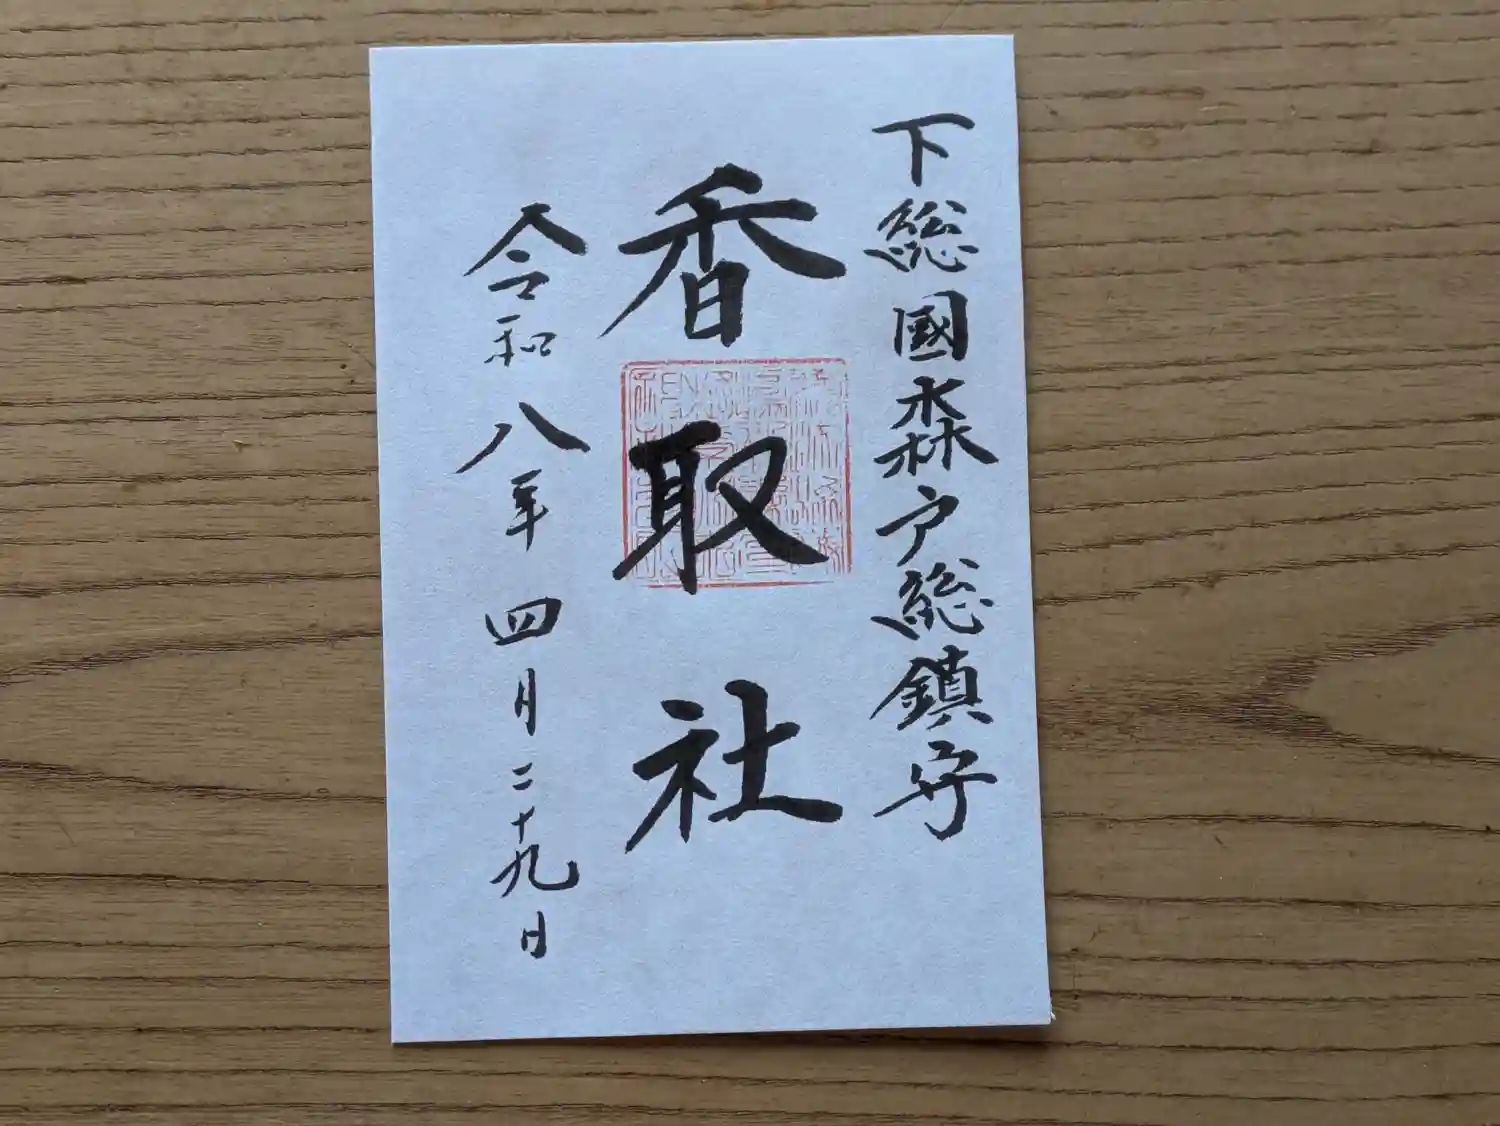 下総國森戸総鎮守
香取社
令和八年四月二十九日